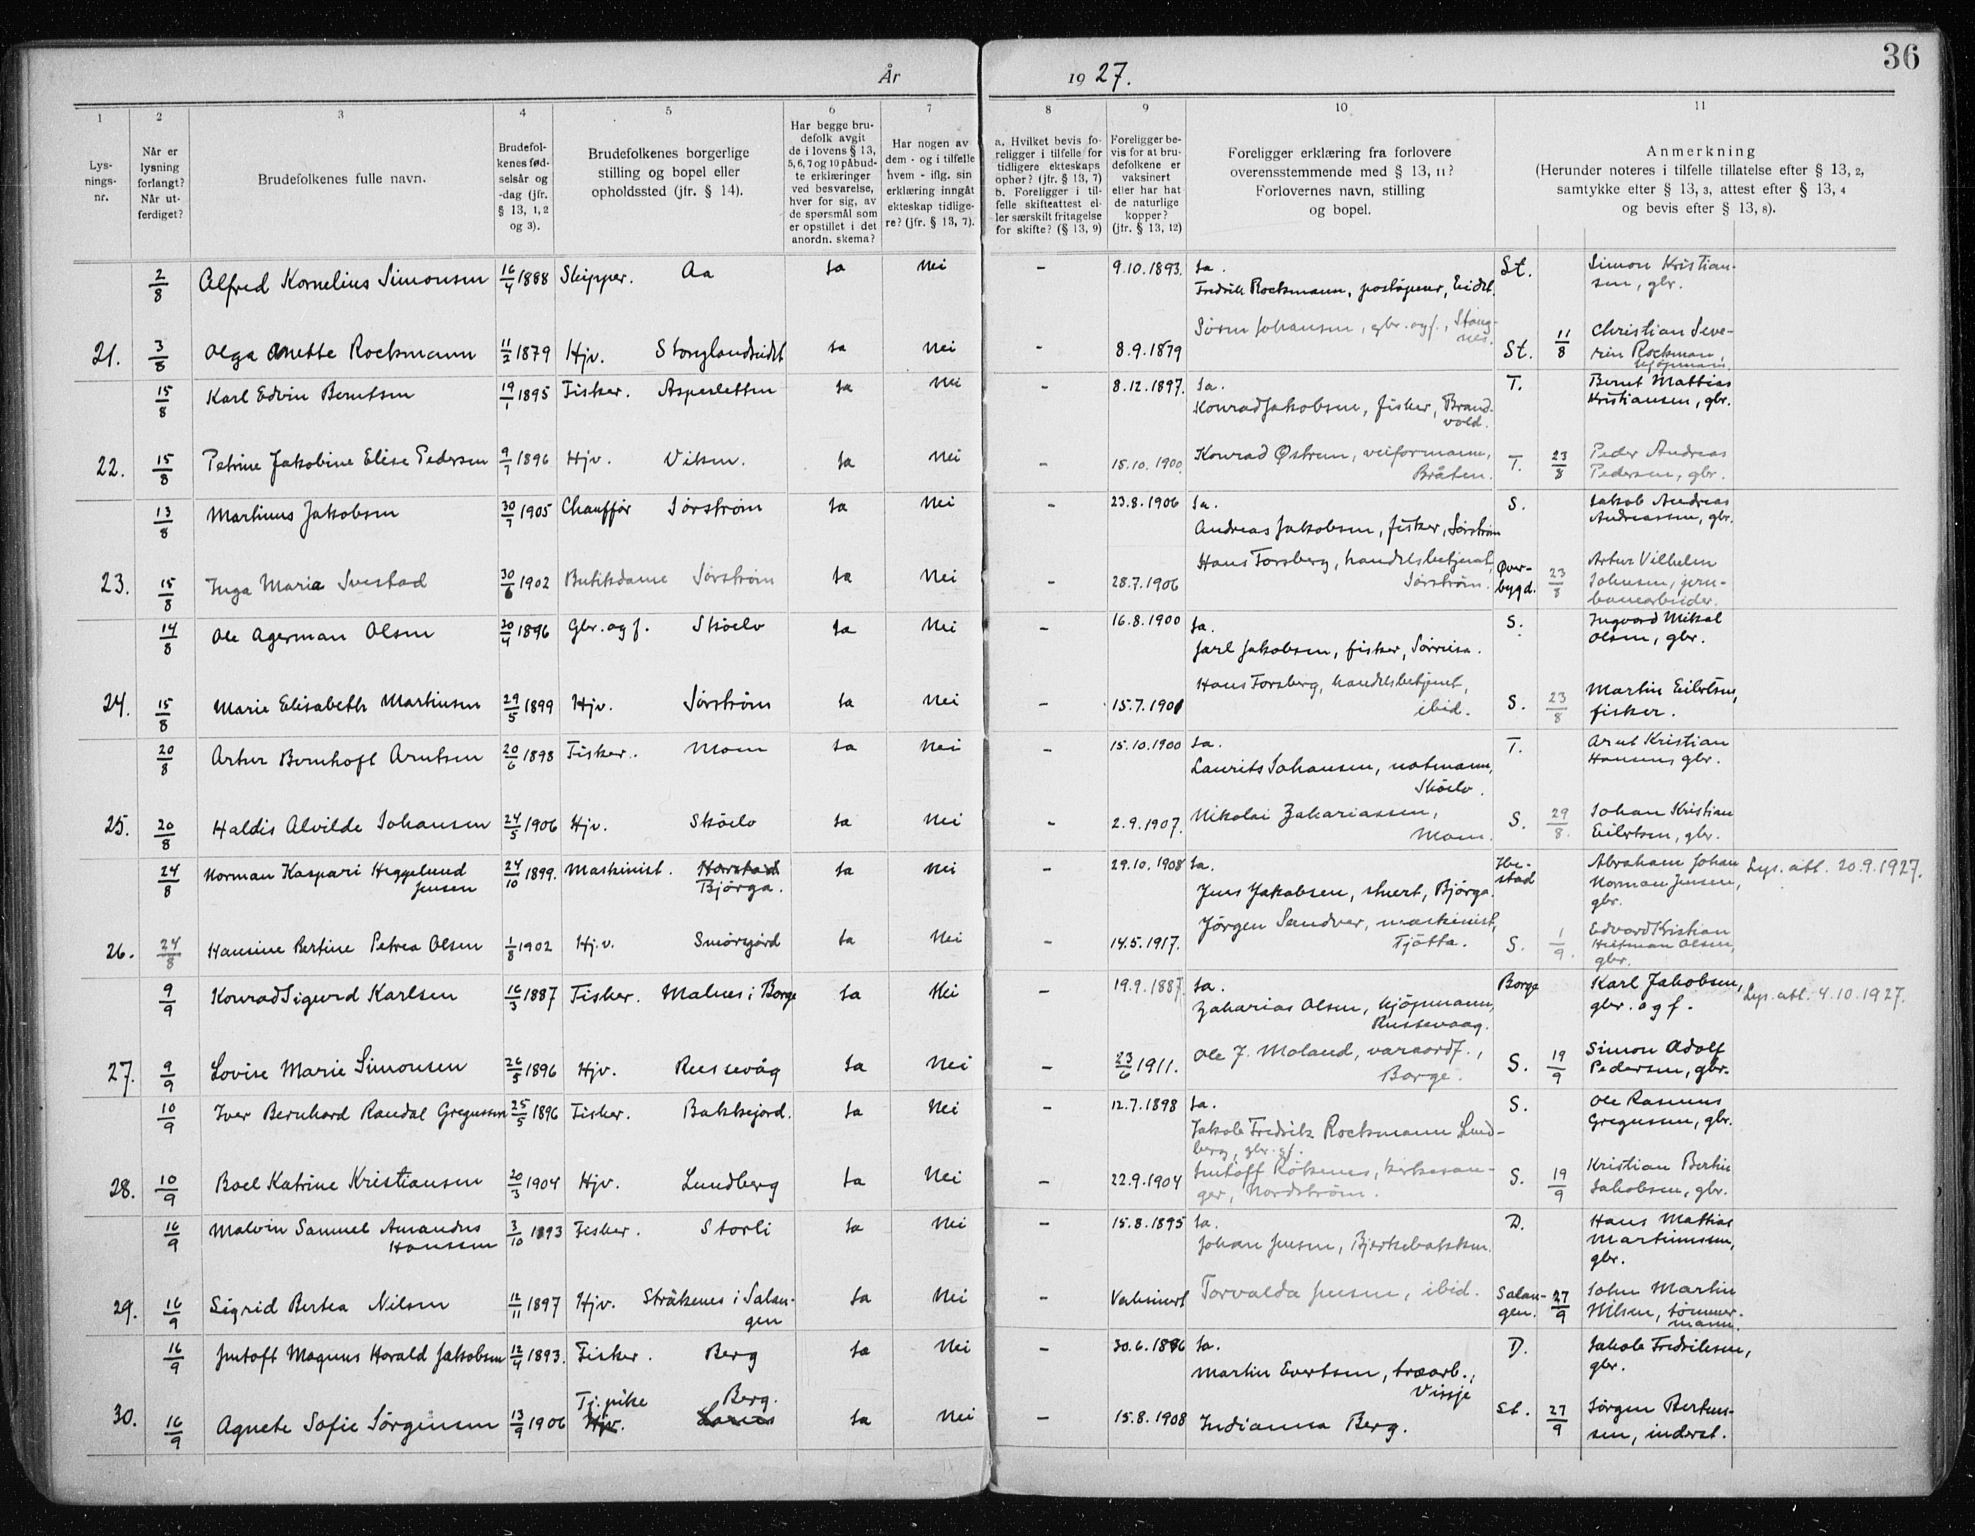 36
År 1927.
1 2 3 4 5 6 7 8 9 10 11
Lys-
nings-
nr.
Når er
lysning
forlangt?
Når ut-
ferdiget?
Brudefolkenes fulle navn.
Brudefol-
kenes fød-
selsår og
-dag (jfr.
§ 13, 1, 2
og 3).
Brudefolkenes borgerlige
stilling og bopel eller
opholdssted (jfr. § 14).
Har begge bru-
defolk avgit
de i lovens § 13,
5, 6, 7 og 10 påbud-
te erklæringer
ved besvarelse,
hver for sig, av
de spørsmål som
er opstillet i det
anordn. skema?
Har nogen av
dem - og i tilfelle
hvem - iflg. sin
erklæring inngått
ekteskap tidlige-
re? (jfr. § 13, 7).
a. Hvilket bevis fo-
religger i tilfelle for
tidligere ekteskaps
ophør? (jfr. § 13, 7)
b. Foreligger i til-
felle skifteattest el-
ler særskilt fritagelse
for skifte? (§ 13, 9)
Foreligger be-
vis for at bru-
defolkene er
vaksinert
eller har hat
de naturlige
kopper?
(jfr. § 13, 12)
Foreligger erklæring fra forlovere
overensstemmende med § 13, 11?
Forlovernes navn, stilling
og bopel.
Anmerkning
(Herunder noteres i tilfelle tillatelse efter § 13, 2,
samtykke efter § 13, 3, attest efter § 13, 4
og bevis efter § 13, 8).
2/8 Alfred Kornelius Simonsen 16/4 1888 Skipper. Aa Ja Nei - 9.10.1893. Ja. St. Simon Kristian-
Fredrik Rockmann, poståpner, Eidet. sen, gbr.
Søren Johansen, gbr. og f., Stang-
nes.
21. 3/8 Olga Anette Rockmann 11/2 1879 Hjv. Stonglandseidet Ja Nei - 8.9.1879 St. 11/8 Christian Seve-
rin Rockman,
kjøpmann
15/8 Karl Edvin Berntsen 19/1 1895 Fisker. Aspesletten Ja Nei - 8.12.1897. Ja. T. Bernt Mattias
Konrad Jakobsen, fisker, Brand- Kristiansen, gbr.
vold.
22. 15/8 Petrine Jakobine Elise Pedersen 9/7 1896 Hjv. Viken. Ja Nei - 15.10.1900. Konrad Østrem, veiformann, T. 23/8 Peder Andreas
Bråten. Pedersen, gbr.
13/8 Martinus Jakobsen 30/7 1905 Chauffør Sørstrøm Ja Nei - 23.8.1906 Ja. S. Jakob Andreas
Andreas Jakobsen, fisker, Sørstrøm Andreassen, gbr.
23. 15/8 Inga Maria Svestad 30/6 1902 Butikdame Sørstrøm Ja Nei - 28.7.1906 Hans Forsberg, handelsbetjent, Over- 23/8 Artur Vilhelm
Sørstrøm. bygd. Johnsen, jern-
banearbeider.
14/8 Ole Agerman Olsen 20/4 1896 Gbr. og f. Skøelv Ja Nei - 16.8.1900 Ja. S. Ingvard Mikal
Jarl Jakobsen, fisker, Sørreisa. Olsen, gbr.
24. 15/8 Marie Elisabeth Martinsen 29/5 1899 Hjv. Sørstrøm Ja Nei - 15.7.1901 Hans Forsberg, handelsbetjent, S. 23/8 Martin Eilertsen,
ibid. fisker.
20/8 Artur Bernhoft Arntsen 20/6 1898 Fisker. Moen Ja Nei - 15.10.1900 Ja. T. Arnt Kristian
Laurits Johansen, notmann, Hansen, gbr.
Skøelv.
25. 20/8 Haldis Alvilde Johansen 24/5 1906 Hjv. Skøelv Ja Nei - 2.9.1907. Nikolai Zahariassen, S. 29/8. Johan Kristian
Moen. Eilertsen, gbr.
24/8 Norman Kaspari Heggelund 24/10 1899. Maskinist. Harstad Ja Nei - 29.10.1908 Ja. Ibe- Abraham Johan Lys. att. 20.9.1927.
Jensen Bjørga. Jens Jakobsen, stuert, Bjørga. stad Norman Jensen,
gbr.
26. 24/8 Hansine Bertine Petrea Olsen 1/8 1902 Hj.v. Smørsgård Ja Nei - 14.5.1917. Jørgen Sandver, maskinist, S. 1/9. Edvard Kristian
Tjøtta. Hartman Olsen,
gbr.
9/9 Konrad Sigurd Karlsen 16/3 1887 Fisker. Malnes i Borge Ja Nei - 19.9.1887. Ja. Borge Karl Jakobsen, Lys. att. 4.10.1927.
Zakarias Olsen, kjøpmann, gbr. og f.
Russevaag.
27. 9/9 Lovise Marie Simonsen 26/5 1896 Hjv. Russevåg Ja Nei - 23/6 1911. Ole J. Moland, varaordf., S. 19/9 Simon Adolf
Borge. Pedersen, gbr.
10/9 Iver Bernhard Randal Gregusson 25/5 1896 Fisker. Bakkejord. Ja Nei - 12.7.1898 Ja. S. Ole Rasmus
Jakob Fredrik Rockmann Lund- Gregusen, gbr.
berg, gbr. og f.
28. 10/9 Boel Katrine Kristiansen 20/3 1904 Hjv. Lundberg Ja Nei - 22.9.1904 Jentoff Røkenes, kirkesan- S. 19/9 Kristian Bertin
ger, Nordstrøm. Jakobsen, gbr.
16/9 Malvin Samuel Amandus 3/10 1893 Fisker. Storli Ja Nei - 15.8.1895 Ja. D. Hans Mattias
Hanssen Johan Jensen, Bjerkebakken. Martinussen,
gbr.
29. 16/9 Sigrid Bertea Nilsen 12/11 1897 Hjv. Stråkenes i Salan- Ja Nei - Vaksinert Torvalda Jensen, ibid. Salan- 27/9 John Martin
gen gen. Nilsen, tømmer-
mann.
16/9 Jentoft Magnus Harald Jakobsen 12/4 1893. Fisker. Berg Ja Nei - 30.6.1896 Ja. D. Jakob Fredriksen,
Martin Evertsen, træarb., gbr.
Vissje
30. 16/9 Agnete Sofie Jørgensen 13/9 1906 Tj.pike Berg. Ja Nei - 15.8.1908 Indianna Berg. St. 27/9 Jørgen Berteus-
Hjv. sen, inderst.